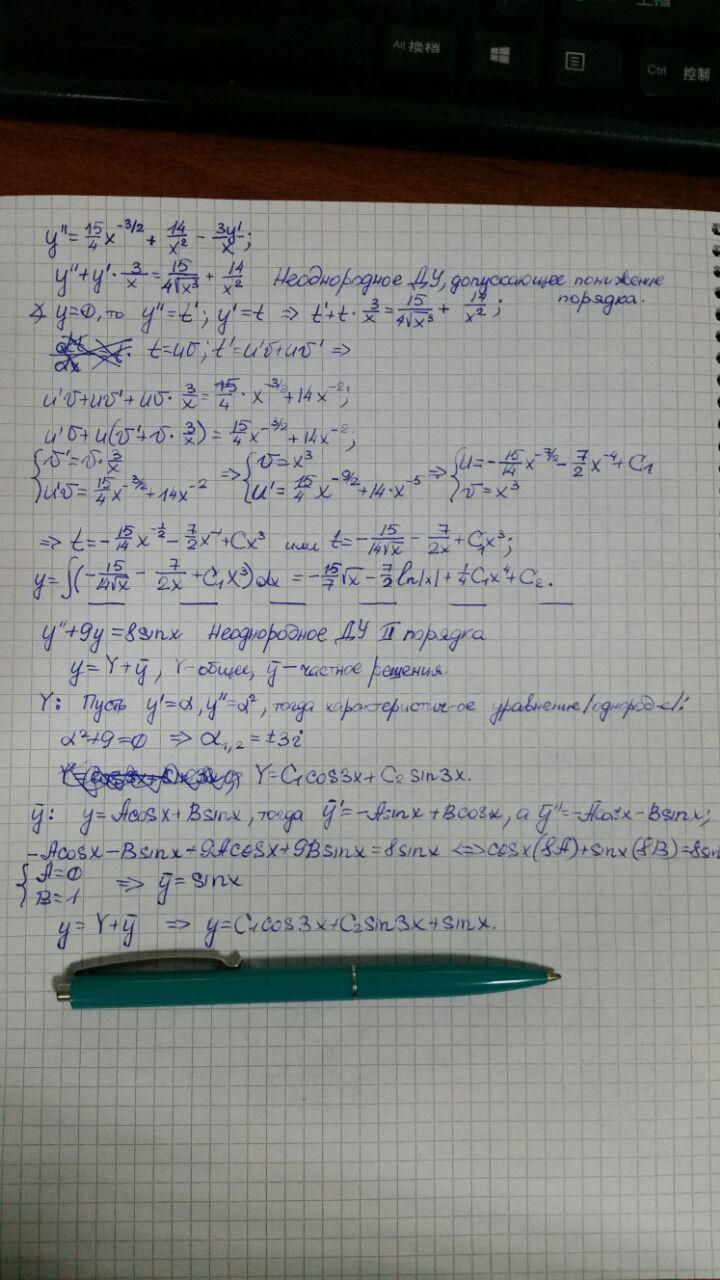 Alt 换档
Ctrl 控制
y''=15/4 x^(-3/2) + 14/x² - 3y'/x;
y''+y'·3/x=15/(4√x³) + 14/x² Неоднородное ДУ, допускающее понижение
порядка.
y=0, то y''=t'; y'=t ⇒ t'+t·3/x=15/(4√x³) + 14/x²;
t=uv; t'=u'v+uv' ⇒
u'v+uv'+uv·3/x=15/4·x^(-3/2)+14x^(-2);
u'v+u(v'+v·3/x)=15/4 x^(-3/2)+14x^(-2);
{v'=v·3/x ⇒ {v=x³ ⇒ {u=-15/14 x^(-7/2)-7/2 x^(-4)+C₁
{u'v=15/4 x^(-3/2)+14x^(-2) {u'=15/4 x^(-9/2)+14·x^(-5) {v=x³
⇒ t=-15/14 x^(-1/2)-7/2 x^(-1)+Cx³ или t=-15/(14√x)-7/(2x)+C₁x³;
y=∫(-15/(14√x)-7/(2x)+C₁x³)dx=-15/7 √x-7/2 ln|x|+1/4 C₁x⁴+C₂.
y''+9y=8sinx Неоднородное ДУ II порядка
y=Y+ȳ, Y-общее, ȳ-частное решения.
Y: Пусть y'=α, y''=α², тогда характеристич-ое уравнение/однород-е/:
α²+9=0 ⇒ α₁,₂=±3i
Y=C₁cos3x+C₂sin3x.
ȳ: y=Acosx+Bsinx, тогда ȳ'=-Asinx+Bcosx, а ȳ''=-Acosx-Bsinx;
-Acosx-Bsinx+9Acosx+9Bsinx=8sinx ⇔cosx(8A)+sinx(8B)=8sin
{A=0
{B=1 ⇒ ȳ=sinx
y=Y+ȳ ⇒ y=C₁cos3x+C₂sin3x+sinx.